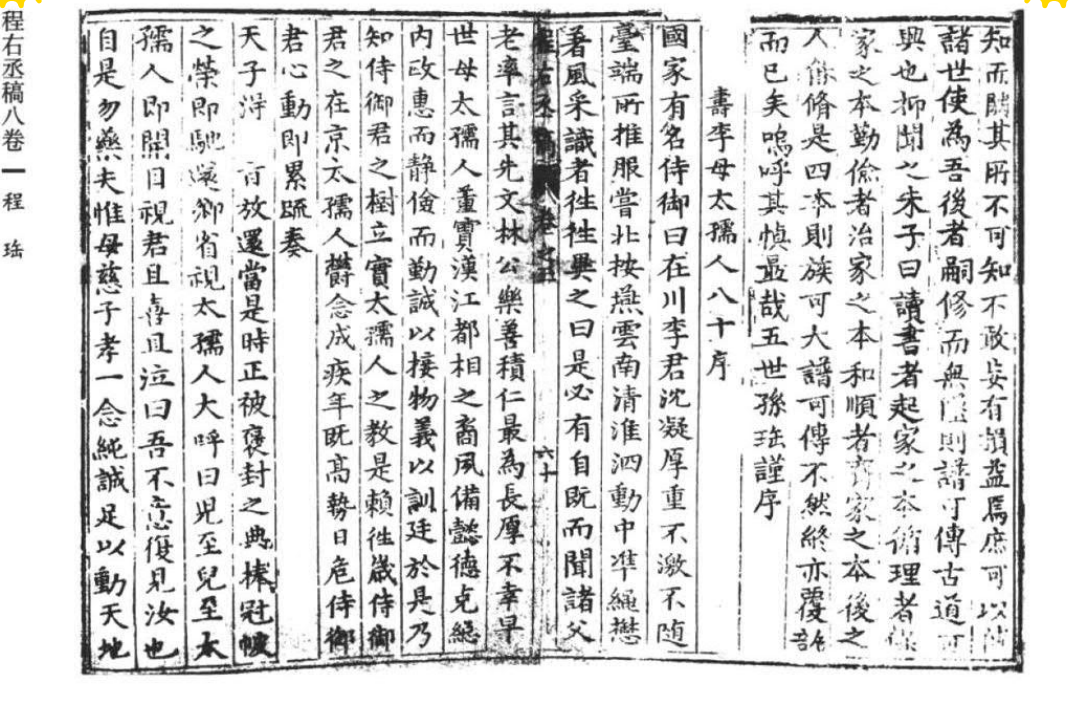 知而闕其所不可知不敢妄有損益焉庶可以傳
諸世使為吾後者嗣修而無墜則譜可傳古道可
興也抑聞之朱子曰讀書者起家之本循理者保
家之本勤儉者治家之本和順者齊家之本後之
人能脩是四本則族可大譜可傳不然終亦覆
而已矣嗚呼其慎最哉五世孫瑤謹序
壽李母太孺人八十序
國家有名侍御曰在川李君沈凝厚重不激不随
臺端所推服嘗北按燕雲南清淮泗動中準繩懋
著風采識者徃徃異之曰是必有自既而聞諸父
程右丞稿 八卷之五 六十
老率言其先文林公樂善積仁最為長厚不幸早
世母太孺人董實漢江都相之裔夙備懿德克總
内政惠而静儉而勤誠以接物義以訓廷於是乃
知侍御君之樹立實太孺人之教是賴徃歲侍御
君之在京太孺人欝念成疾年既髙勢日危侍御
君心動即累䟽奏
天子淂 㫖放還當是時正被褒封之典捧冠帔
之榮即馳還鄉省視太孺人大呼曰児至兒至太
孺人即開目視君且喜且泣曰吾不意復見汝也
自是勿藥夫惟母慈子孝一念純誠足以動天地
程右丞稿八卷 一 程 瑤